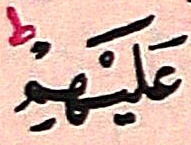 عَلَيْهِمْؕ